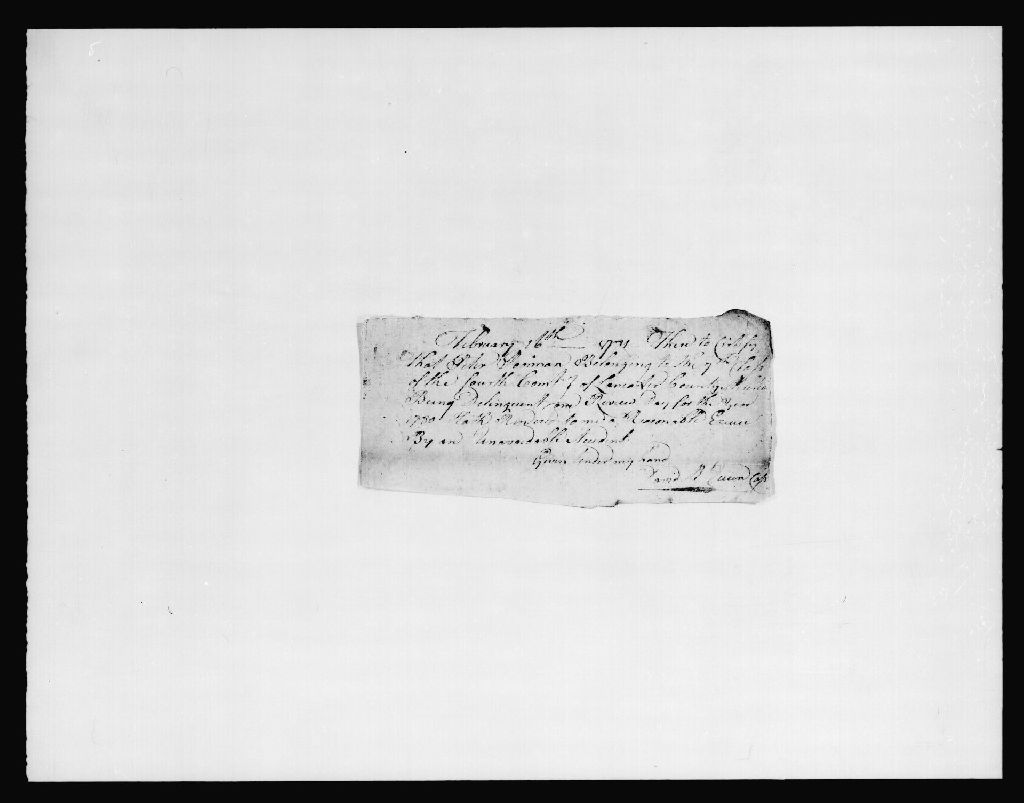 February 16th 1781 Then to Certify
that Peter Belonging to the 7th Class
of the fourth Compy of Lancaster County Militia
Being Delinquent one Review Day for the Year
1780 Hath Rendered to me a Reasonable Excuse
By an Unavoidable Accident
Given Under my hand
David Capt